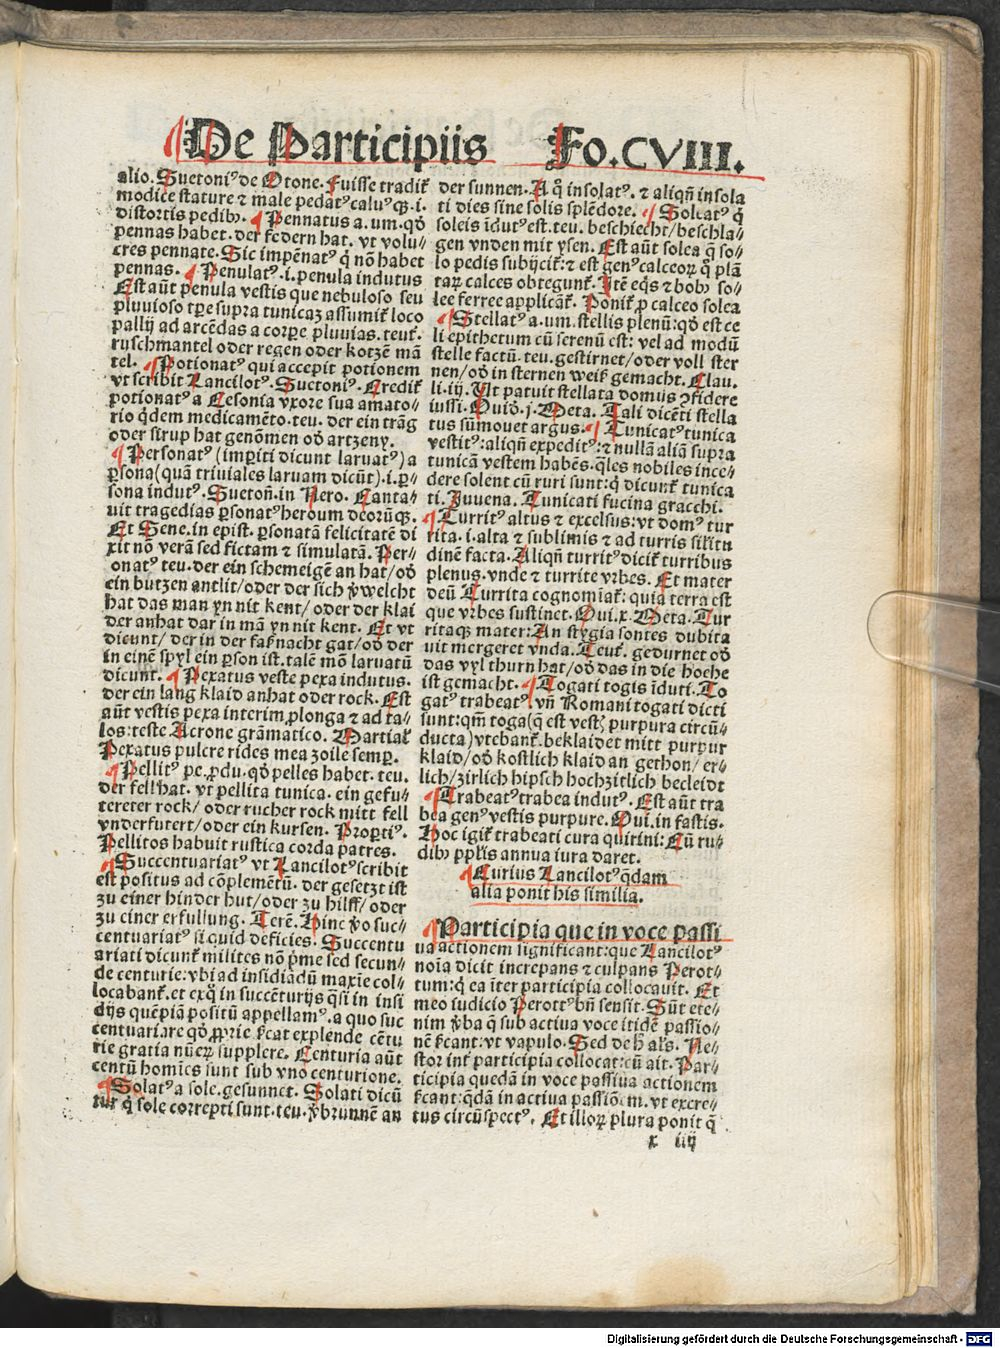 De Participiis Fo. CVIII.
alio. Suetoniꝰ de Otone. Fuisse tradit᷑
modice stature ⁊ male pedatꝰ caluꝰ qꝫ .i.
distortis pedibꝫ. ¶ Pennatus a. um. qđ
pennas habet. der federn hat. vt volu⸗
cres pennate. Sic impēnatꝰ q̇ nō habet
pennas. ¶ Penulatꝰ .i. penula indutus
Est aūt penula vestis que nebuloso seu
pluuioso tp̄e supra tunicaꝫ assumit᷑ loco
pallij ad arcēdas a corpe pluuias. teut᷑.
ruschmantel oder regen oder kotzē mā
tel. ¶ Potionatꝰ qui accepit potionem
vt scribit Lancilotꝰ. Suetoniꝰ. Credit᷑
potionatꝰ a Cesonia vxore sua amato⸗
rio q̇dem medicamēto. teu. der ein trāg
oder sirup hat genōmen ođ artzeny.
¶ Personatꝰ (imp̱iti dicunt laruatꝰ) a
p̱sona (quā triuiales laruam dicūt) .i. p̱⸗
sona indutꝰ. Suetoñ. in Nero. Canta⸗
uit tragedias p̱sonatꝰ heroum deorūqꝫ.
Et Sene. in epist. p̱sonatā felicitatē di
xit nō verā sed fictam ⁊ simulatā. Per⸗
onatꝰ teu. der ein schemeigē an hat / ođ
ein butzen antlit / oder der sich v̓welcht
hat das man yn nit kent / oder der klai
der anhat dar in mā yn nit kent. Et vt
dicunt / der in der faßnacht gat / ođ der
in einē spyl ein p̱son ist. talē mō laruatū
dicunt. ¶ Pexatus veste pexa indutus.
der ein lang klaid anhat oder rock. Est
aūt vestis pexa interim ꝓlonga ⁊ ad ta⸗
los: teste Acrone grāmatico. Martial᷑
Pexatus pulcre rides mea zoile semp̱.
¶ Pellitꝰ p̱e. ꝓdu. qđ pelles habet. teu.
der fell hat. vt pellita tunica. ein gefu⸗
tereter rock / oder rucher rock mitt fell
vnderfutert / oder ein kursen. Prop̱tiꝰ.
Pellitos habuit rustica corda patres.
¶ Succenturiatꝰ vt Lancilotꝰ scribit
est positus ad cōplemētū. der gesetzt ist
zu einer hinder hut / oder zu hilff / oder
zu einer erfullung. Terē. Hinc v̓o suc⸗
centuriatꝰ si quid deficies. Succentu
ariati dicunt᷑ milites nō p̱me sed secun⸗
de centurie: vbi ad insidiādū maxīe col⸗
locabant᷑. et ex q̇ in succēturijs q̄si in insi
dijs quēpiā positū appellamꝰ. a quo suc
centuriare qđ ꝓprie s̓cat explende cētu
rie gratia nūeꝝ supplere. Centuria aūt
centū homīes sunt sub vno centurione.
¶ Solatꝰ a sole. gesunnet. Solati dicū
tur q̇ sole correpti sunt. teu. v̓brunnē an
der sunnen. A q̊ insolatꝰ. ⁊ aliqñ insola
ti dies sine solis splēdore. ¶ Soleatꝰ q̇
soleis īdutꝰ est. teu. beschiecht / beschla⸗
gen vnden mit ysen. Est aūt solea q̄ so⸗
lo pedis subijcit᷑: ⁊ est genꝰ calceoꝝ q̊ plā
taꝝ calces obtegunt᷑. Itē eq̄s ⁊ bobꝫ so⸗
lee ferree applicāt᷑. Ponit᷑ ꝓ calceo solea
¶ Stellatꝰ a. um. stellis plenū: qđ est ce
li epithetum cū serenū est: vel ad modū
stelle factū. teu. gestirnet / oder voll ster
nen / ođ in sternen weiß gemacht. Clau.
li. iij. Ut patuit stellata domus ꝯfidere
iussi. Ouiđ. j. Meta. Tali dicēti stella
tus sūmouet argus. ¶ Tunicatꝰ tunica
vestitꝰ: aliqñ expeditꝰ: ⁊ nullā aliā supra
tunicā vestem habēs. q̄les nobiles ince⸗
dere solent cū ruri sunt: q̇ dicunt᷑ tunica
ti. Juuena. Tunicati fucina gracchi.
¶ Turritꝰ altus ⁊ excelsus: vt domꝰ tur
rita .i. alta ⁊ sublimis ⁊ ad turris silitu
dinē facta. Aliqñ turritꝰ dicit᷑ turribus
plenus. vnde ⁊ turrite vrbes. Et mater
deū Turrita cognomīat᷑: quia terra est
que vrbes sustinet. Oui. x. Meta. Tur
ritaqꝫ mater: An stygia sontes dubita
uit mergeret vnda. Teut᷑. gedurnet ođ
das vyl thurn hat / ođ das in die hoehe
ist gemacht. ¶ Togati togis īduti. To
gatꝰ trabeatꝰ. vñ Romani togati dicti
sunt: qm̄ toga (q̄ est vestꝭ purpura circū⸗
ducta) vtebant᷑. beklaidet mitt purpur
klaid / ođ kostlich klaid an gethon / er⸗
lich / zirlich hipsch hochzitlich becleidt
¶ Trabeatꝰ trabea indutꝰ. Est aūt tra
bea genꝰ vestis purpure. Oui. in fastis.
Hoc igit᷑ trabeati cura quirini: Cū ru⸗
dibꝫ pp̄lis annua iura daret.
¶ Curius Lancilotꝰ q̄dam
alia ponit his similia.
Participia que in voce passi
ua actionem significant: que Lancilotꝰ
noīa dicit increpans ⁊ culpans Perot⸗
tum: q̇ ea īter participia collocauit. Et
meo iudicio Perottꝰ bñ sensit. Sūt ete⸗
nim v̓ba q̄ sub actiua voce itidē passio⸗
nē s̓cant: vt vapulo. Sed de h̄ al̓s. Ne⸗
stor int᷑ participia collocat: cū ait. Par⸗
ticipia quedā in voce passiua actionem
s̓cant: q̄dā in actiua passiōem. vt excre⸗
tus circūspectꝰ. Et illoꝝ plura ponit q̄
x iiij
Digitalisierung gefördert durch die Deutsche Forschungsgemeinschaft - DFG